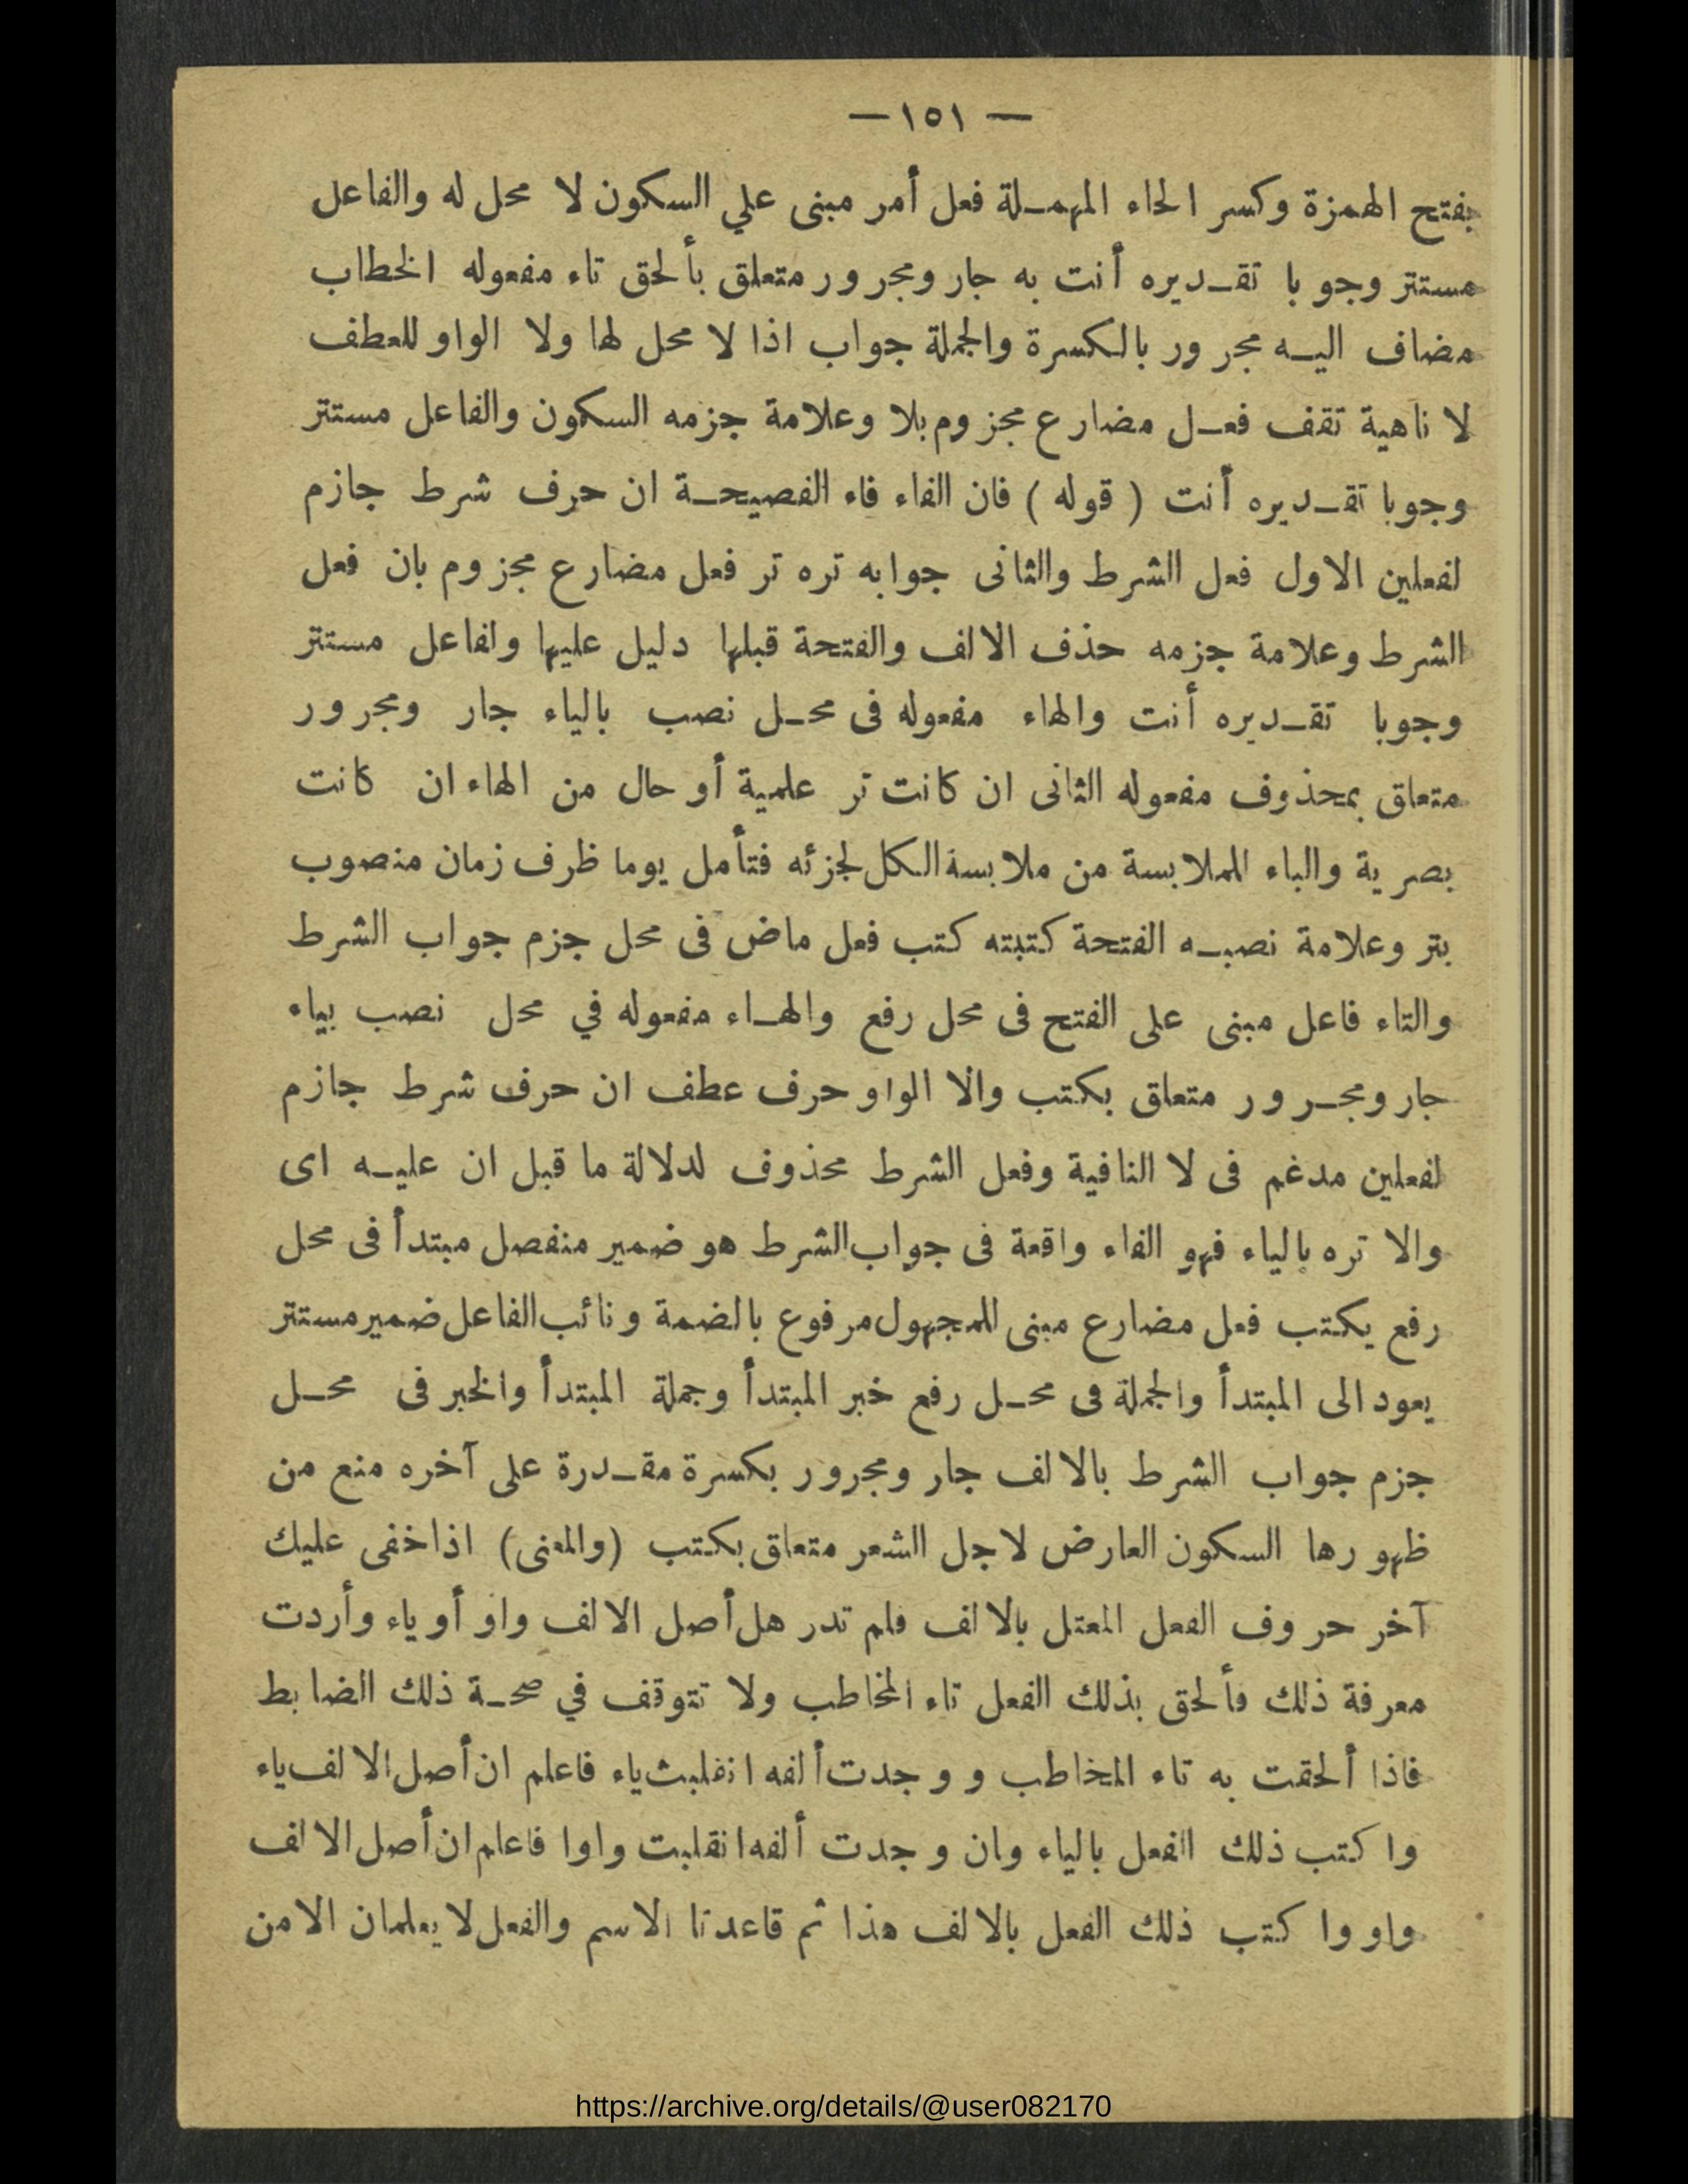 — ١٥١ —
بفتح الهمزة وكسر الحاء المهملة فعل أمر مبنى علي السكون لا محل له والفاعل
مستتر وجوبا تقديره أنت به جار ومجرور متعلق بألحق تاء مفعوله الخطاب
مضاف اليه مجرور بالكسرة والجملة جواب اذا لا محل لها ولا الواو للعطف
لا ناهية تقف فعل مضارع مجزوم بلا وعلامة جزمه السكون والفاعل مستتر
وجوبا تقديره أنت ( قوله ) فان الفاء فاء الفصيحة ان حرف شرط جازم
لفعلين الاول فعل الشرط والثانى جوابه تره تر فعل مضارع مجزوم بان فعل
الشرط وعلامة جزمه حذف الالف والفتحة قبلها دليل عليها ولفاعل مستتر
وجوبا تقديره أنت والهاء مفعوله فى محل نصب بالياء جار ومجرور
متعلق بمحذوف مفعوله الثانى ان كانت تر علمية أو حال من الهاء ان كانت
بصرية والباء للملابسة من ملابسة الكل لجزئه فتأمل يوما ظرف زمان منصوب
بتر وعلامة نصبه الفتحة كتبته كتب فعل ماض فى محل جزم جواب الشرط
والتاء فاعل مبنى على الفتح فى محل رفع والهاء مفعوله في محل نصب بياء
جار ومجرور متعلق بكتب والا الواو حرف عطف ان حرف شرط جازم
لفعلين مدغم فى لا النافية وفعل الشرط محذوف لدلالة ما قبل ان عليه اى
والا تره بالياء فهو الفاء واقعة فى جواب الشرط هو ضمير منفصل مبتدأ فى محل
رفع يكتب فعل مضارع مبنى للمجهول مرفوع بالضمة ونائب الفاعل ضمير مستتر
يعود الى المبتدأ والجملة فى محل رفع خبر المبتدأ وجملة المبتدأ والخبر فى محل
جزم جواب الشرط بالالف جار ومجرور بكسرة مقدرة على آخره منع من
ظهورها السكون العارض لاجل الشعر متعلق بكتب (والمعنى) اذا خفى عليك
آخر حروف الفعل المعتل بالالف فلم تدر هل أصل الالف واو أو ياء وأردت
معرفة ذلك فألحق بذلك الفعل تاء المخاطب ولا تتوقف في صحة ذلك الضابط
فاذا ألحقت به تاء المخاطب ووجدت ألفه انقلبت ياء فاعلم ان أصل الالف ياء
واكتب ذلك الفعل بالياء وان وجدت ألفه انقلبت واوا فاعلم ان أصل الالف
واو واكتب ذلك الفعل بالالف هذا ثم قاعدتا الاسم والفعل لا يعلمان الا من
https://archive.org/details/@user082170